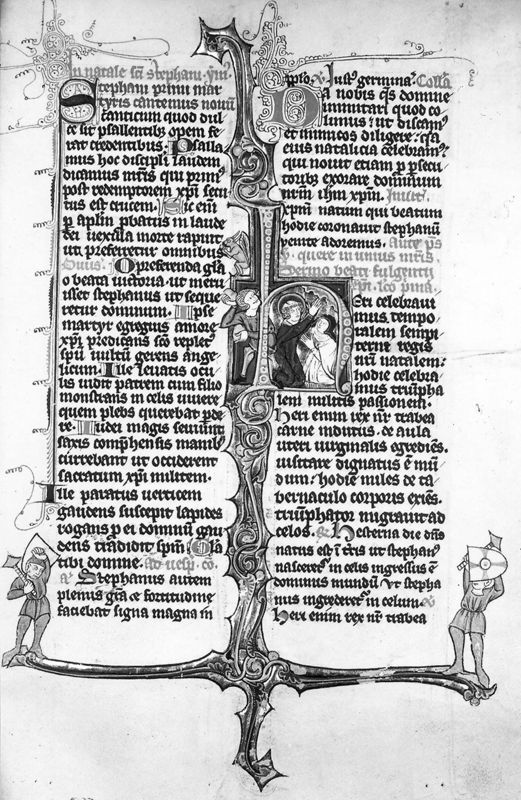 In natale sci Stephani. ym
Stephani primi mar
tyris cantemus nouu
canticum quod dul
ce sit psallentibz opem fe
rat credentibus. Psalla
mus hoc discipli laudem
dicamus mris qui prim9
post redemptorem xpi secu
tus est crucem. Hic em
p aplm pbatus in laude
dei uexilla morte rapuit
ut preferretur omnibus
O preferenda gla
o beata uictoria ut meru
isset stephanus ut seque
retur dominum. Ipse
martyr egregius amore
xpi predicans sco replet9
spu uultu gerens ange
licum. Ille leuatis ocu
lis uidit patrem cum filio
monstrans in celis uiuere
quem plebs querebat pde
re. Iudei magis seuiunt
saxis comphensis manib9
currebant ut occiderent
sacratum xpi militem.
Ille paratus uerticem
gaudens suscepit lapides
rogans p ei domini gau
dens tradidit spm. Gla
tibi domine. ad uesp.
Stephanus autem
plenus gla et fortitudine
faciebat signa magna in
pplo. Iust9 germina. Colla
Da nobis qs domine
immitari quod co
limus: ut discam9
et inimicos diligere: qia
eius natalicia celebram9:
qui nouit etiam p psecu
toribz exorare dominum
nrm ihm xpm. Inuit.
xpm natum qui beatum
hodie coronauit stephanu
uenite adoremus. ps
quere in unius mris.
Sermo beati fulgentii
epi. lco pma.
Heri celebraui
mus tempo
ralem sempi
terni regis
nri natalem:
hodie celebra
mus triupha
lem militis passionem.
Heri enim rex nr trabea
carne indutus. de aula
uteri uirginalis egredies.
uisitare dignatus e mu
dum: hodie miles de ta
bernaculo corporis exies.
triuphator migrauit ad
celos. Hesterna die dns
natus est i tris ut stephan9
nasceret in celis ingressus e
dominus mundu ut stepha
nus ingrederet in celum.
Heri enim rex nr trabea